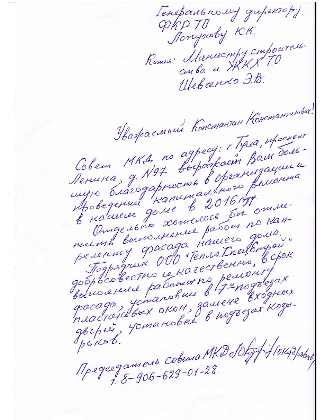 Генеральному директору
ФКР ТО
Лопухову К.К.
Копия: Министру строитель-
ства и ЖКХ ТО
Шевченко Э.В.
Уважаемый Константин Константинович!
Совет МКД по адресу: г. Тула, проспект
Ленина, д. №97 выражает Вам боль-
шую благодарность в организации и
проведении капитального ремонта
в нашем доме в 2016 г.
Отдельно хотелось бы отме-
тить выполнение работ по кап-
ремонту фасада нашего дома.
Подрядчик ООО "ТеплоВенСтрой"
добросовестно и качественно, в срок
выполнил работы по ремонту
фасада, установке в подъездах
пластиковых окон, замене входных
дверей, установке в подъездах козы-
рьков.
Председатель совета МКД
т. 8-906-629-01-28.